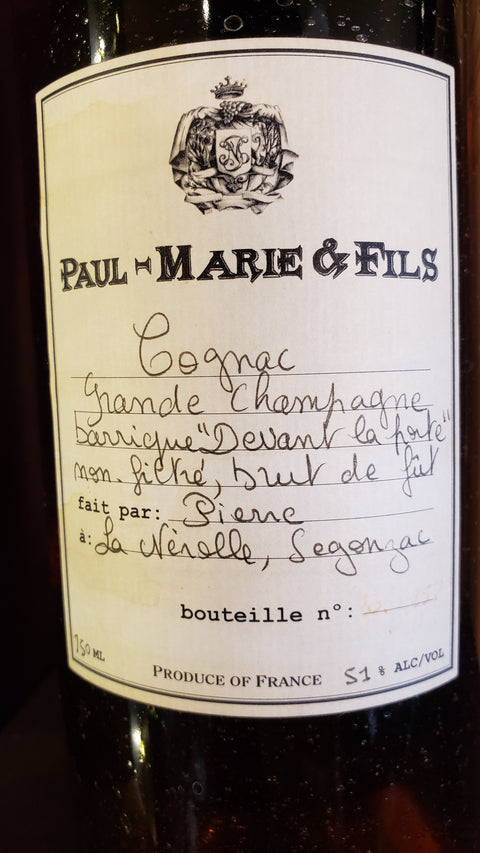 PAUL-MARIE & FILS
Cognac
Grande Champagne
barrique "Devant la porte"
non filtré, brut de fût
fait par: Pierre
à: La Nérolle, Segonzac
bouteille n°:
750 ML
PRODUCE OF FRANCE
51 % ALC/VOL